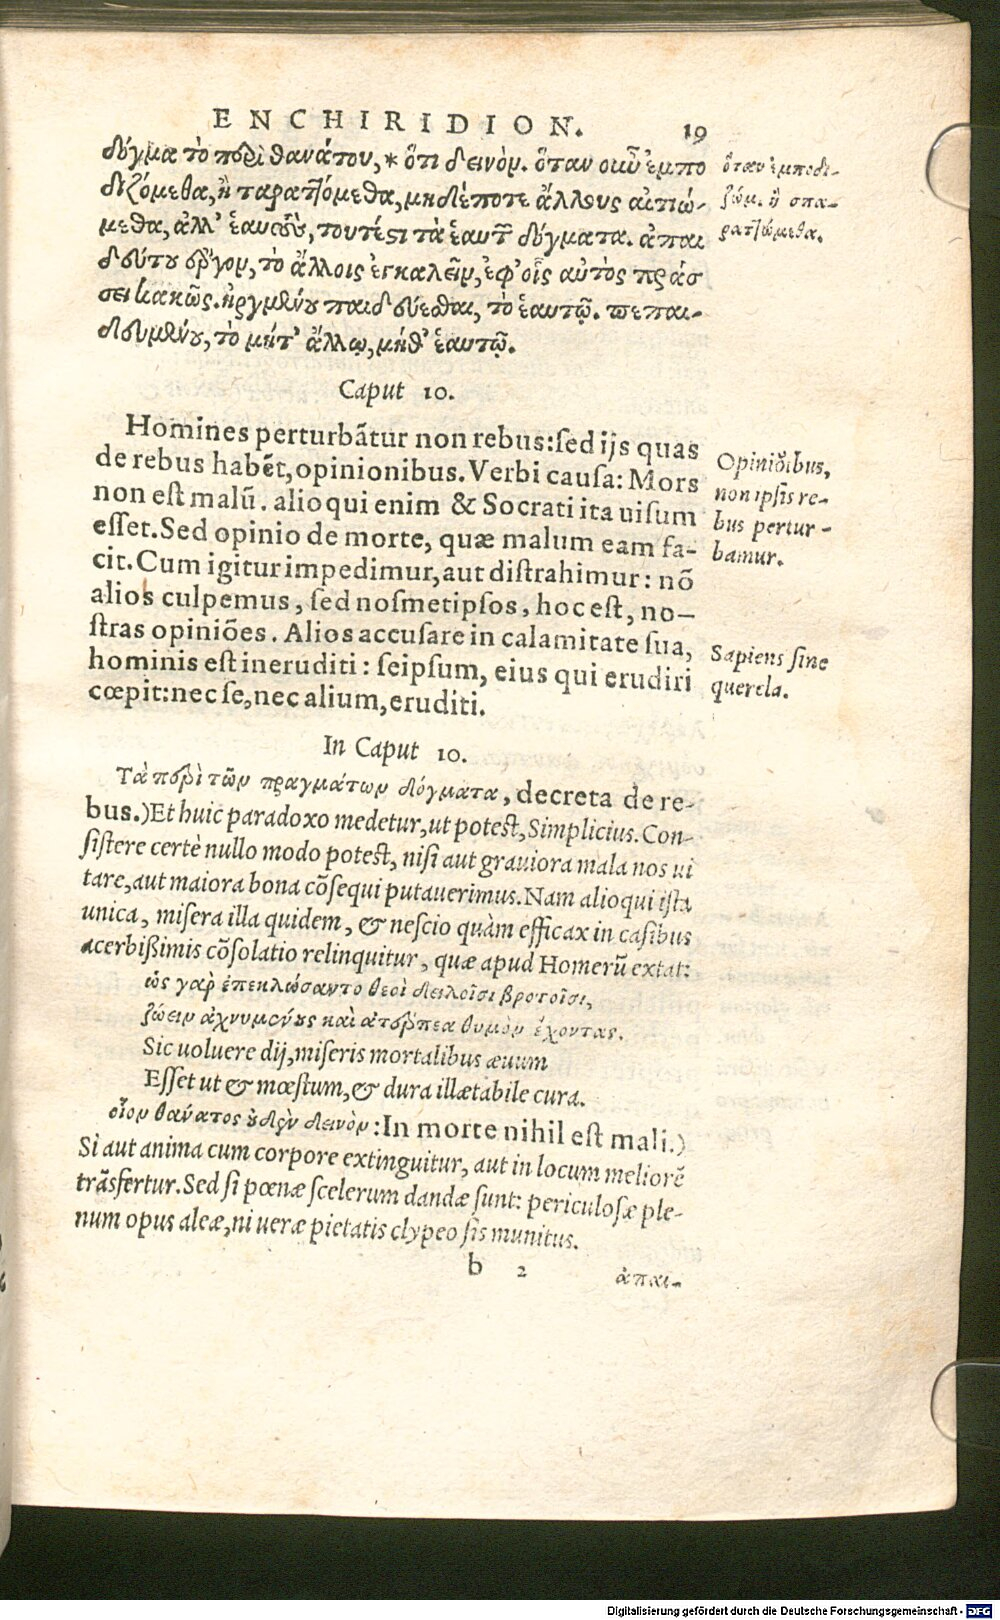 ENCHIRIDION. 19
δόγμα τὸ περὶ θανάτου,* ὅτι δεινόν. ὅταν οὖν ἐμπο
διζόμεθα, ἢ ταραττόμεθα, μηδέποτε ἄλλους αἰτιώ-
μεθα, ἀλλ' ἑαυτοὺς, τουτέστι τὰ ἑαυτῶν δόγματα. ἀπαι
δεύτου ἔργον, τὸ ἄλλοις ἐγκαλεῖν, ἐφ' οἷς αὐτὸς πράσ
σει κακῶς. ἠργμένου παιδεύεσθαι, τὸ ἑαυτῷ. πεπαι-
δευμένου, τὸ μήτ' ἄλλῳ, μήθ' ἑαυτῷ.
ὅταν ἐμποδι-
ζώμ. ἢ σπα-
ραττώμεθα.
Caput 10.
Homines perturbãtur non rebus: sed ijs quas
de rebus habẽt, opinionibus. Verbi causa: Mors
non est malũ. alioqui enim & Socrati ita uisum
esset. Sed opinio de morte, quæ malum eam fa-
cit. Cum igitur impedimur, aut distrahimur: nõ
alios culpemus, sed nosmetipsos, hoc est, no-
stras opiniões. Alios accusare in calamitate sua,
hominis est ineruditi: seipsum, eius qui erudiri
cœpit: nec se, nec alium, eruditi.
Opiniõibus,
non ipsis re-
bus pertur-
bamur.
Sapiens sine
querela.
In Caput 10.
Τὰ περὶ τῶν πραγμάτων δόγματα, decreta de re-
bus.) Et huic paradoxo medetur, ut potest, Simplicius. Con-
sistere certè nullo modo potest, nisi aut grauiora mala nos ui
tare, aut maiora bona cõsequi putauerimus. Nam alioqui ista
unica, misera illa quidem, & nescio quàm efficax in casibus
acerbißimis cõsolatio relinquitur, quæ apud Homerũ extat:
ὡς γὰρ ἐπεκλώσαντο θεοὶ δειλοῖσι βροτοῖσι,
ζώειν ἀχνυμένους καὶ ἀτερπέα θυμὸν ἔχοντας.
Sic uoluere dij, miseris mortalibus æuum
Esset ut & mœstum, & dura illætabile cura.
οἷον θανάτος οὐδὲν δεινὸν: In morte nihil est mali.)
Si aut anima cum corpore extinguitur, aut in locum meliorẽ
trãsfertur. Sed si pœnæ scelerum dandæ sunt: periculosæ ple-
num opus aleæ, ni ueræ pietatis clypeo sis munitus.
b 2 ἀπαι-
Digitalisierung gefördert durch die Deutsche Forschungsgemeinschaft - DFG